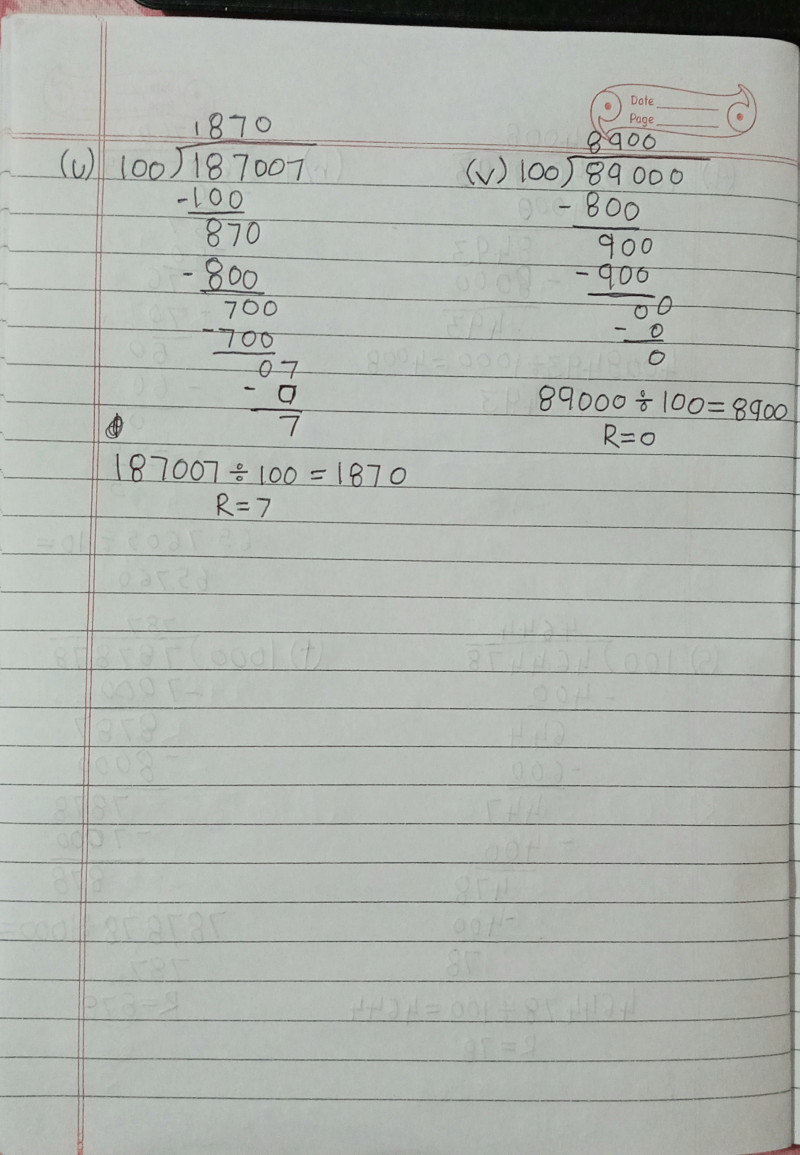 Date
Page
1870
(u) 100)187007
-100
870
-800
700
-700
07
-0
7
187007÷100=1870
R=7
8900
(v) 100)89000
-800
900
-900
00
-0
0
89000÷100=8900
R=0